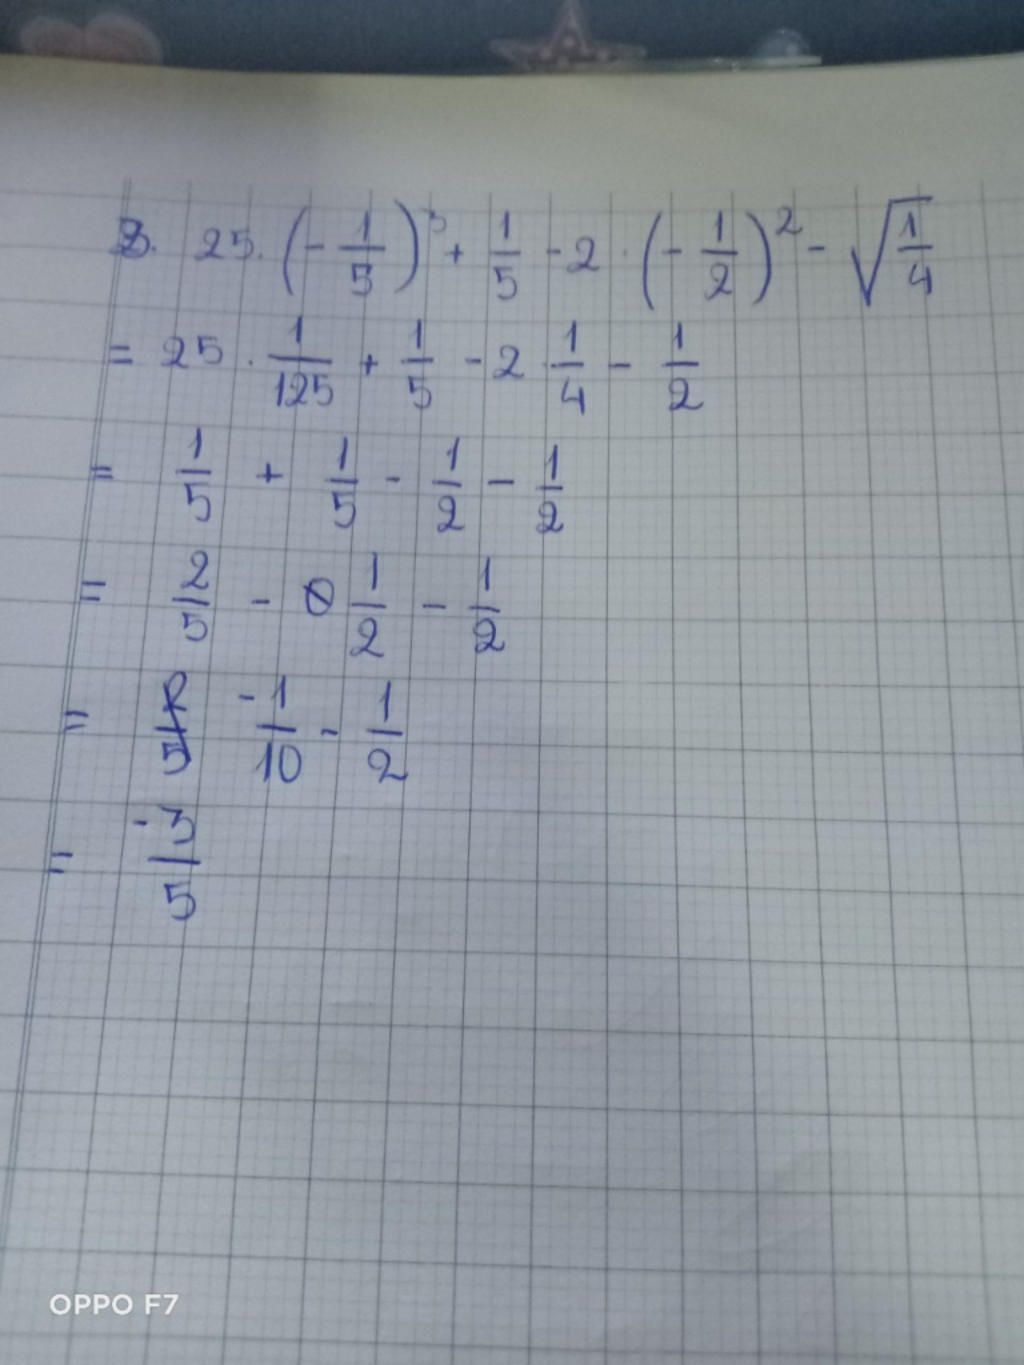 3. 25. (-1/5)³ + 1/5 - 2 . (-1/2)² - √1/4
= 25 . 1/125 + 1/5 - 2 1/4 - 1/2
= 1/5 + 1/5 - 1/2 - 1/2
= 2/5 - 1/2 - 1/2
= -1/10 - 1/2
= -3/5
OPPO F7